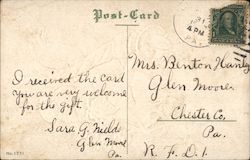 Post-Card
4 PM
PA.
Mrs. Binton Hanley
Glen Moore
Chester Co.
Pa.
R. F. D. 1
I received the card
You are very welcome
for the gift.
Sara G. Fields
Glen Moore
Pa.
No. 1771